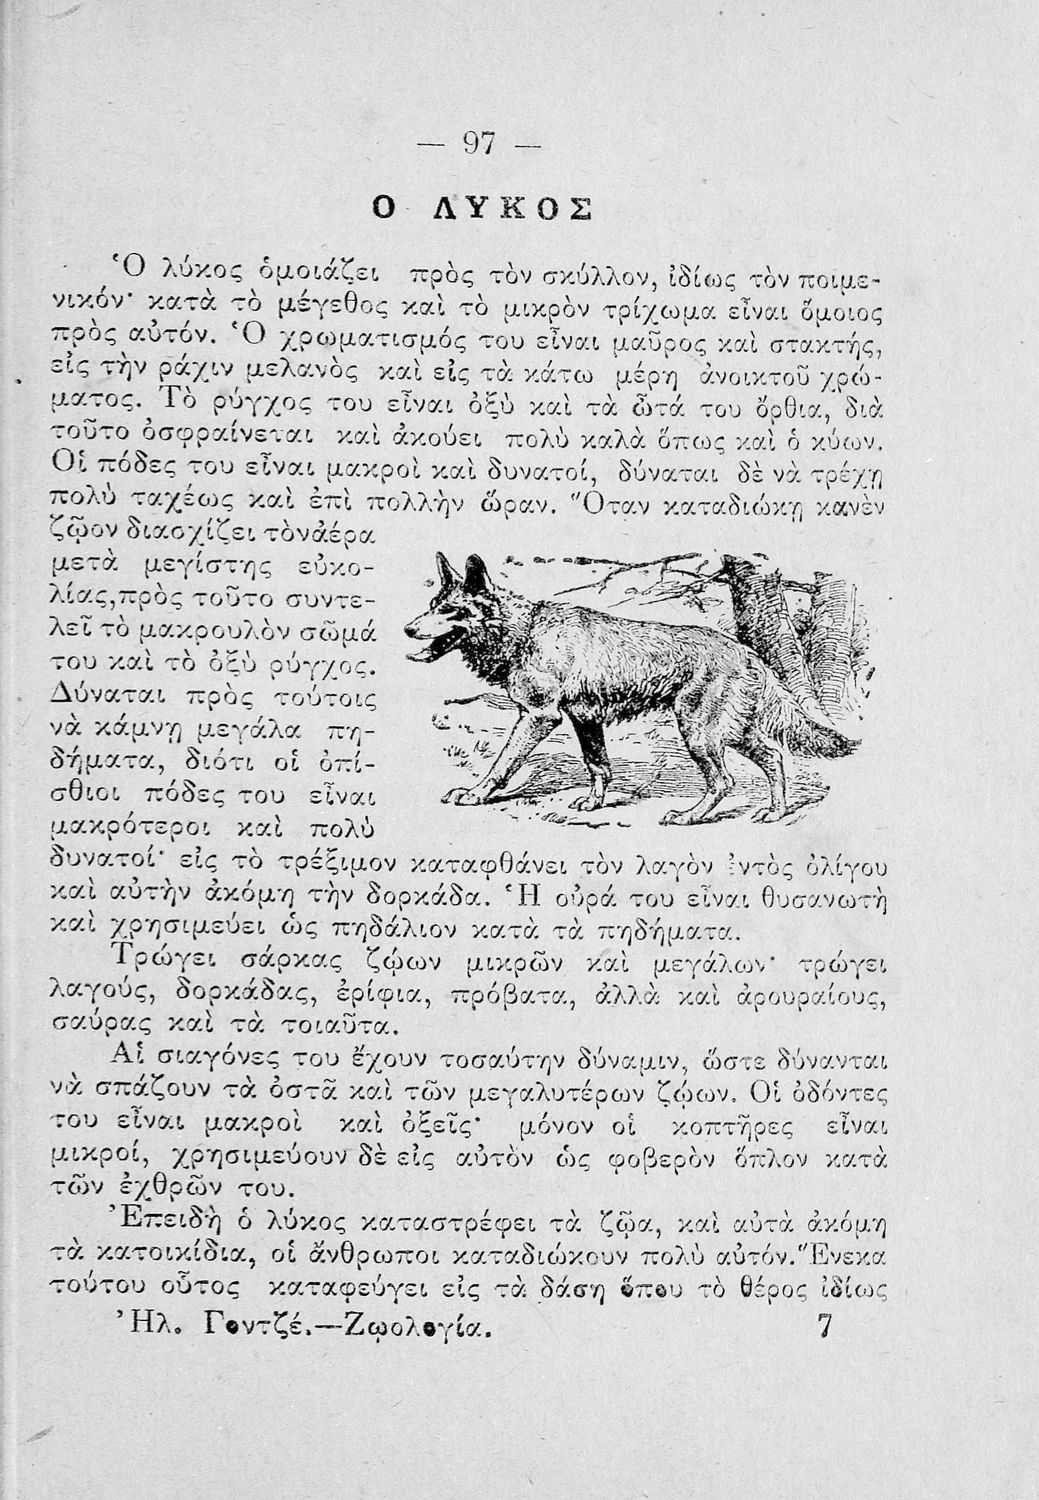 — 97 —
Ο ΛΥΚΟΣ
Ὁ λύκος ὁμοιάζει πρὸς τὸν σκύλλον, ἰδίως τὸν ποιμε-
νικόν· κατὰ τὸ μέγεθος καὶ τὸ μικρὸν τρίχωμα εἶναι ὅμοιος
πρὸς αὐτόν. Ὁ χρωματισμός του εἶναι μαῦρος καὶ στακτής,
εἰς τὴν ράχιν μελανὸς καὶ εἰς τὰ κάτω μέρη ἀνοικτοῦ χρώ-
ματος. Τὸ ρύγχος του εἶναι ὀξὺ καὶ τὰ ὦτά του ὄρθια, διὰ
τοῦτο ὀσφραίνεται καὶ ἀκούει πολὺ καλὰ ὅπως καὶ ὁ κύων.
Οἱ πόδες του εἶναι μακροὶ καὶ δυνατοί, δύναται δὲ νὰ τρέχῃ
πολὺ ταχέως καὶ ἐπὶ πολλὴν ὥραν. Ὅταν καταδιώκῃ κανὲν
ζῷον διασχίζει τὸνἀέρα
μετὰ μεγίστης εὐκο-
λίας,πρὸς τοῦτο συντε-
λεῖ τὸ μακρουλὸν σῶμά
του καὶ τὸ ὀξὺ ρύγχος.
Δύναται πρὸς τούτοις
νὰ κάμνῃ μεγάλα πη-
δήματα, διότι οἱ ὀπί-
σθιοι πόδες του εἶναι
μακρότεροι καὶ πολὺ
δυνατοί· εἰς τὸ τρέξιμον καταφθάνει τὸν λαγὸν ἐντὸς ὀλίγου
καὶ αὐτὴν ἀκόμη τὴν δορκάδα. Ἡ οὐρά του εἶναι θυσανωτὴ
καὶ χρησιμεύει ὡς πηδάλιον κατὰ τὰ πηδήματα.
Τρώγει σάρκας ζῴων μικρῶν καὶ μεγάλων· τρώγει
λαγούς, δορκάδας, ἐρίφια, πρόβατα, ἀλλὰ καὶ ἀρουραίους,
σαύρας καὶ τὰ τοιαῦτα.
Αἱ σιαγόνες του ἔχουν τοσαύτην δύναμιν, ὥστε δύνανται
νὰ σπάζουν τὰ ὀστᾶ καὶ τῶν μεγαλυτέρων ζῴων. Οἱ ὀδόντες
του εἶναι μακροὶ καὶ ὀξεῖς· μόνον οἱ κοπτῆρες εἶναι
μικροί, χρησιμεύουν δὲ εἰς αὐτὸν ὡς φοβερὸν ὅπλον κατὰ
τῶν ἐχθρῶν του.
Ἐπειδὴ ὁ λύκος καταστρέφει τὰ ζῷα, καὶ αὐτὰ ἀκόμη
τὰ κατοικίδια, οἱ ἄνθρωποι καταδιώκουν πολὺ αὐτόν. Ἕνεκα
τούτου οὗτος καταφεύγει εἰς τὰ δάση ὅπου τὸ θέρος ἰδίως
Ἠλ. Γοντζέ.—Ζωολογία. 7